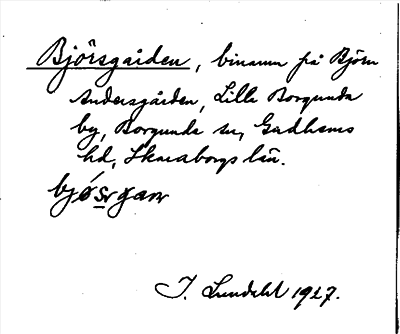 Björsgården, binamn på Björn
Andersgården, Lilla Borgunda
by, Borgunda sn, Gudhems
hd, Skaraborgs län.
J. Lundahl 1927.